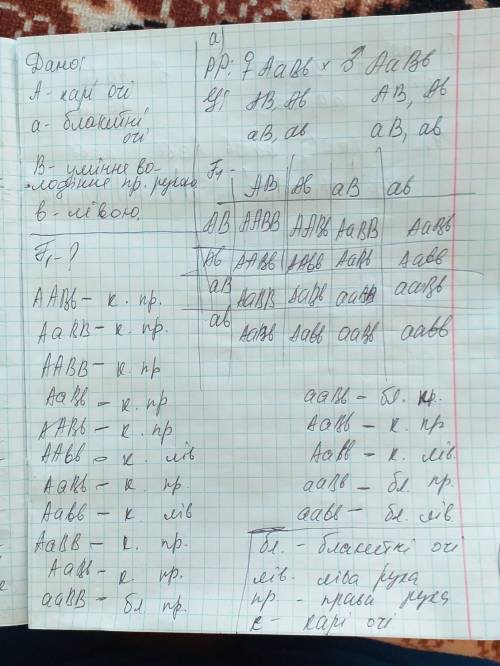 Дано:
А - карі очі
а - блакитні
очі
В - уміння во-
лодіння пр. рукою
в - лівою.
F₁ - ?
а)
РР: ♀ АаВв × ♂ АаВв
АВ, Ав АВ, Ав
аВ, ав аВ, ав
F₁ -
АВ Ав аВ ав
АВ ААВВ ААВв АаВВ АаВв
Ав ААВв ААвв АаВв Аавв
аВ АаВВ АаВв ааВВ ааВв
ав АаВв Аавв ааВв аавв
ААВв - к. пр.
АаВВ - к. пр.
ААВВ - к. пр
АаВв - к. пр
ААВв - к. пр
ААвв - к. лів
АаВв - к. пр.
Аавв - к. лів
АаВВ - к. пр.
АаВв - к. пр.
ааВВ - бл пр.
ааВв - бл. пр.
АаВв - к. пр
Аавв - к. лів.
ааВв - бл. пр.
аавв - бл. лів.
бл. - блакитні очі
лів. ліва рука
пр. - права рука
к - карі очі